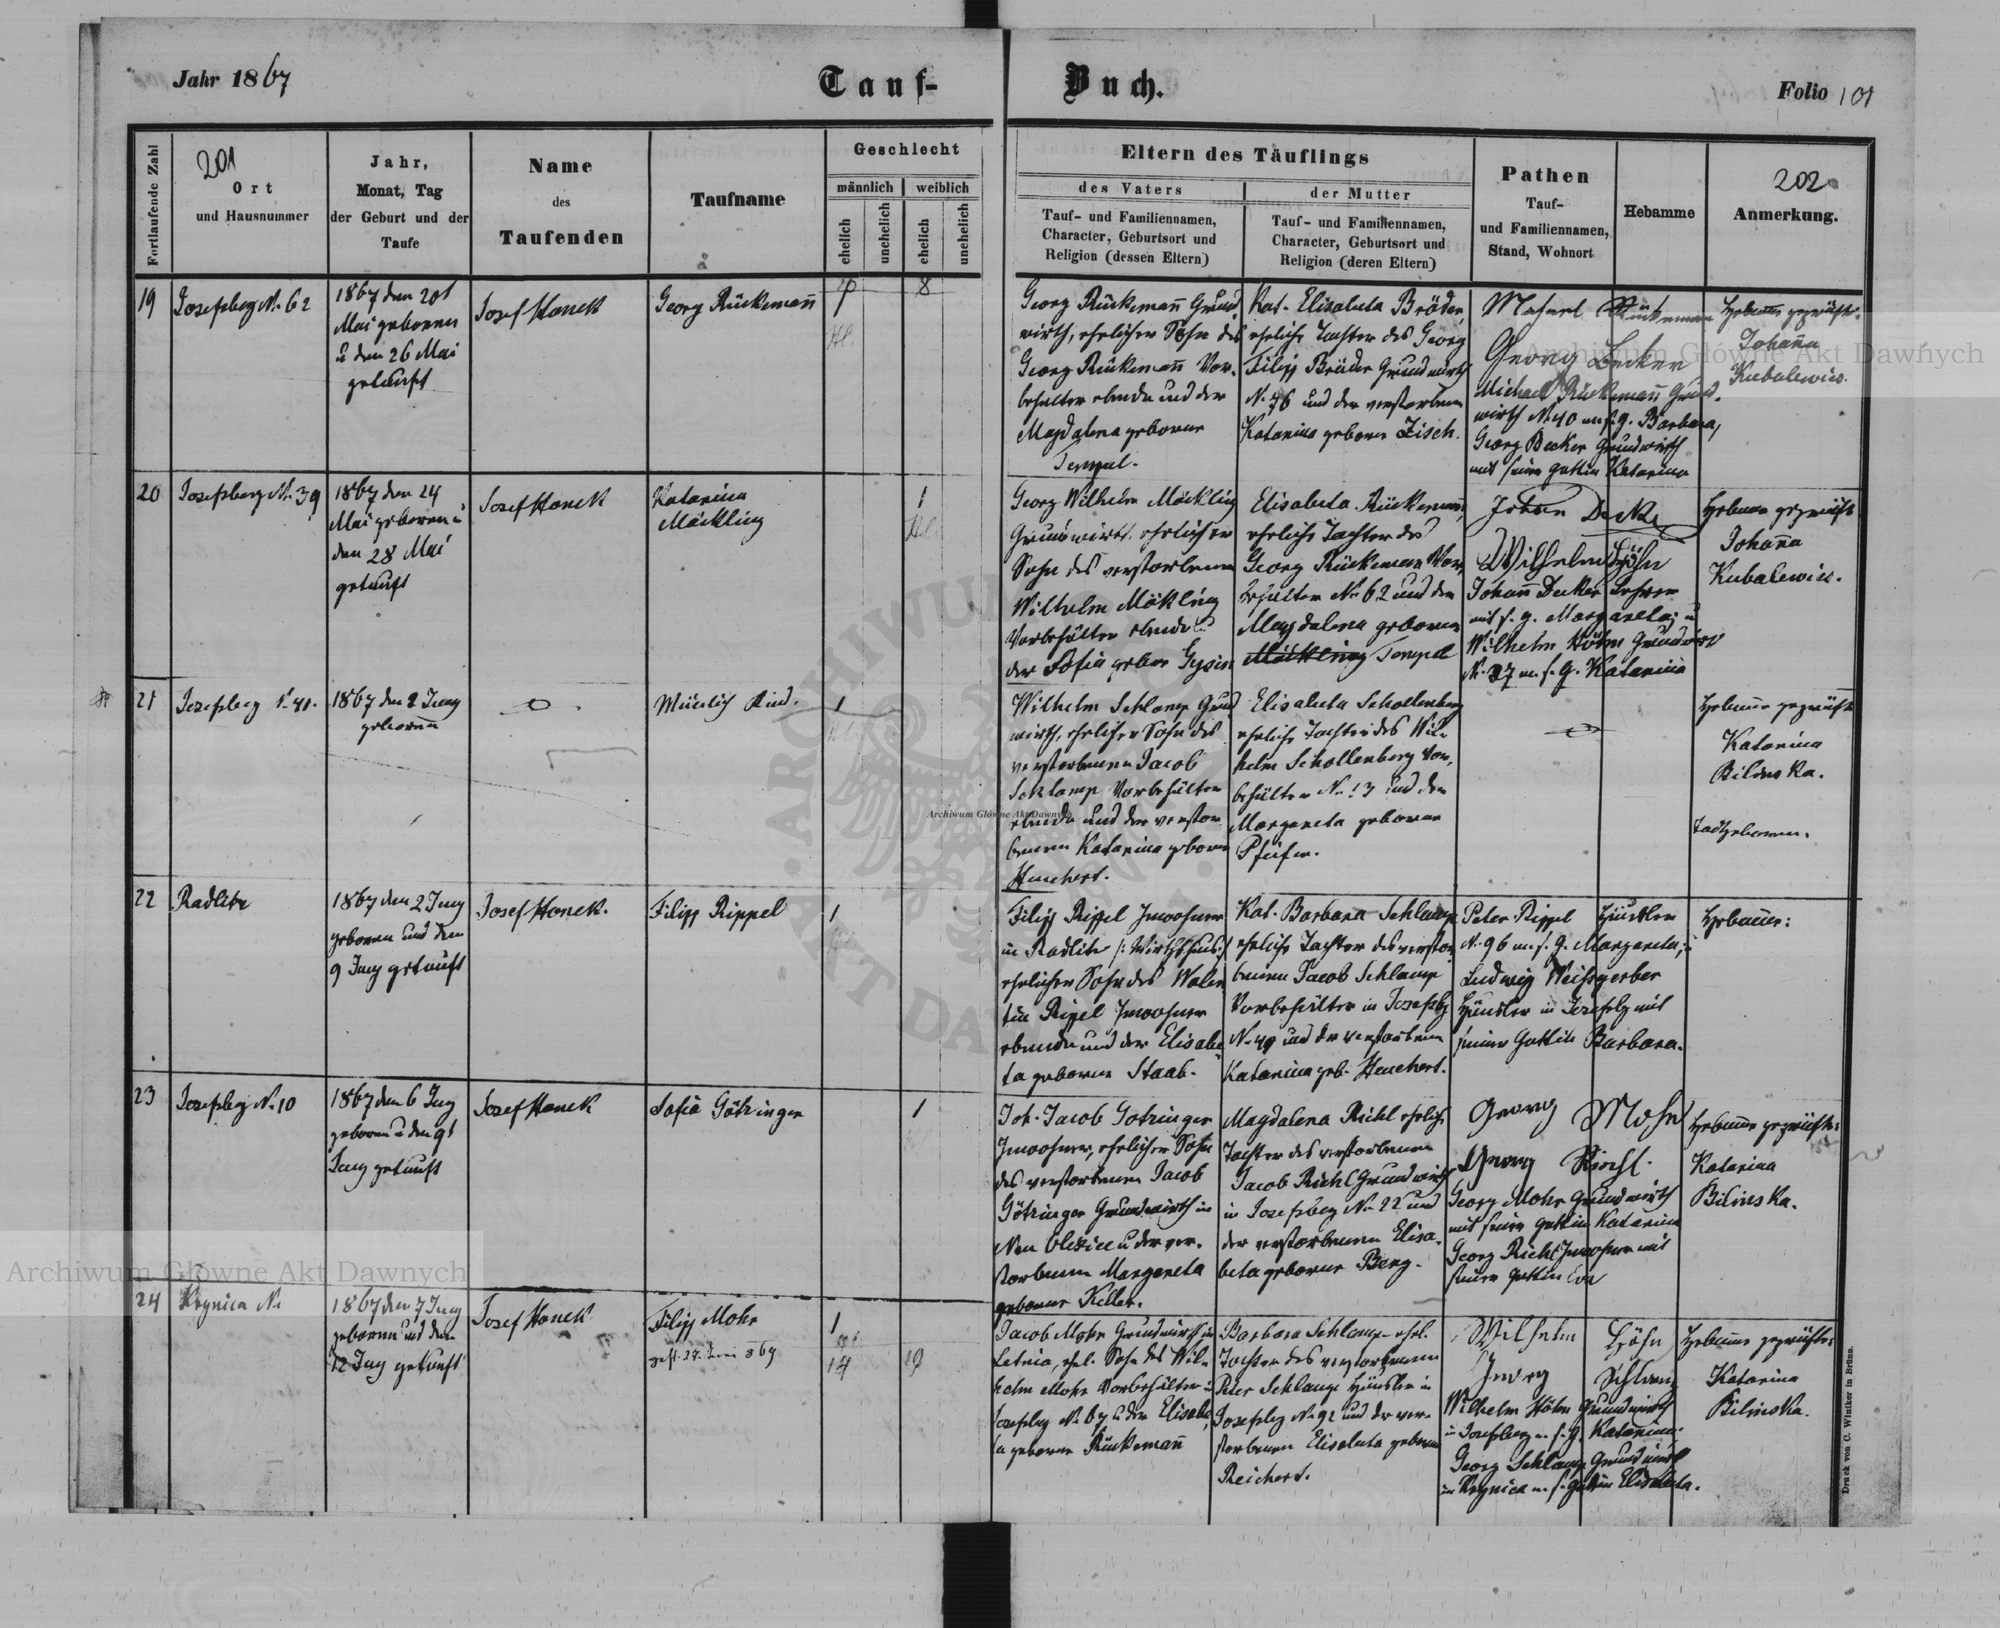 Jahr 1867
Tauf-
Buch.
Folio 101
Fortlaufende Zahl
201
Ort
und Hausnummer
Jahr,
Monat, Tag
der Geburt und der
Taufe
Name
des
Taufenden
Taufname
Geschlecht
männlich
weiblich
ehelich
unehelich
ehelich
unehelich
Eltern des Täuflings
des Vaters
Tauf- und Familiennamen,
Character, Geburtsort und
Religion (dessen Eltern)
der Mutter
Tauf- und Familiennamen,
Character, Geburtsort und
Religion (deren Eltern)
Pathen
Tauf-
und Familiennamen,
Stand, Wohnort
Hebamme
202
Anmerkung.
19
Josefsberg N. 62
1867 den 20t
Mai geboren
u den 26 Mai
getauft
Josef Hanek
Georg Rückemann
8
Georg Rückemann Grund
wirth, ehelicher Sohn des
Georg Rückemann Vor-
behalter ebenda und der
Magdalena geborne
Tempel.
Kat. Elisabeta Bröder,
eheliche Tochter des Georg
Filipp Bröder Grundwirth
N. 76 und der verstorbenen
Katarina geborne Zisch.
Georg Becker
Michael Rückemann Grund-
wirth N. 40 m. s. g. Barbara,
Georg Becker Grundwirth
mit seine gattin Katarina
Hebamme geprüfte
Johanna
Kubalewicz.
20
Josefsberg N. 39
1867 den 24
Mai geboren u
den 28 Mai
getauft
Josef Hanek
Katarina
Möckling
1
Georg Wilhelm Möckling
Grundwirth. ehelicher
Sohn des verstorbenen
Wilhelm Mökling
Vorbehälter ebenda u
der Sofia gebor
Elisabeta Rückemann,
eheliche Tochter des
Georg Rückemann Vor-
behälter N. 62 und der
Magdalena geborene
Möckling Tempel
Johann Decker
Wilhelm Höhn
Johann Decker Lehrer
mit s. g. Margareta; u
Wilhelm Höhn Grundwirt
N. 27 m. s. G. Katarina
Hebamme geprüfte
Johanna
Kubalewicz.
21
Josefsberg N. 41.
1867 den 2 Juny
geboren
Männlich Kind.
1
Wilhelm Schlamp Grund
wirth, ehelicher Sohn des
verstorbenen Jacob
Schlamp Vorbehälter
ebenda und der verstor
benen Katarina geborne
Huchert.
Elisabeta Schollenberg
eheliche Tochter des Wil-
helm Schollenberg Vor-
behälter N. 13 und der
Margareta geborene
Pfeifer.
Hebamme geprüfte
Katarina
Bilinska.
Todtgeboren.
22
Radlitz
1867 den 2 Juny
geboren und den
9 Juny getauft
Josef Hanek.
Filipp Rippel
1
Filipp Rippel Inwohner
in Radlitz /: Wirthshaus:/
ehelicher Sohn des Walen
tin Rippel Inwohner
ebenda und der Elisabe
ta geborne Staab.
Kat. Barbara Schlamp
eheliche Tochter des verstor
benen Jacob Schlamp
Vorbehälter in Josefsbg
N. 49 und der verstorbenen
Katarina geb. Huchert.
Peter Rippel Häusler
N. 96 m. s. g. Margareta; u
Ludwig Weissgerber
Häusler in Josefsbg mit
seiner Gattin Barbara.
Hebamme:
23
Josefsbg N. 10
1867 den 6 Juny
geboren u den 9t
Juny getauft
Josef Hanek
Sofia Götzinger
1
Joh. Jacob Gotzinger
Inwohner, ehelicher Sohn
des verstorbenen Jacob
Götzinger Grundwirth in
Neu Olexice u der ver-
storbenen Margareta
geborne Keller.
Magdalena Richl eheliche
Tochter des verstorbenen
Jacob Richl Grundwirth
in Josefsberg N. 22 und
der verstorbenen Elisa-
beta geborne Berg.
Georg Mohr
Georg Riehl.
Georg Mohr Grundwirth
mit seine gattin Katarina
Georg Richl Inwohner mit
seiner gattin Eva
Hebamme geprüfte:
Katarina
Bilinska.
24
Krynica N.
1867 den 7 Juny
geboren und den
12 Juny getauft
Josef Hanek
Filipp Mohr
1
14
Jacob Mohr Grundwirth in
Letnia, ehel. Sohn des Wil-
helm Mohr Vorbehälter in
Josefsbg N. 67 u der Elisabe
ta geborne Rückemann
Barbara Schlamp ehel.
Tochter des verstorbenen
Peter Schlamp Häusler in
Josefsbg N. 92 und der ver-
storbenen Elisabeta geborne
Reichert.
Wilhelm Höhn
Georg Schlamp
Wilhelm Höhn Grundwirth
in Josefsberg m. s. g. Katarina.
Georg Schlamp Grundwirth
in Krynica m. s. gattin Elisabeta.
Hebamme geprüfte:
Katarina
Bilinska.
Druck von C. Winiker in Brünn.
Archiwum Główne Akt Dawnych
Archiwum Główne Akt Dawnych
Archiwum Główne Akt Dawnych